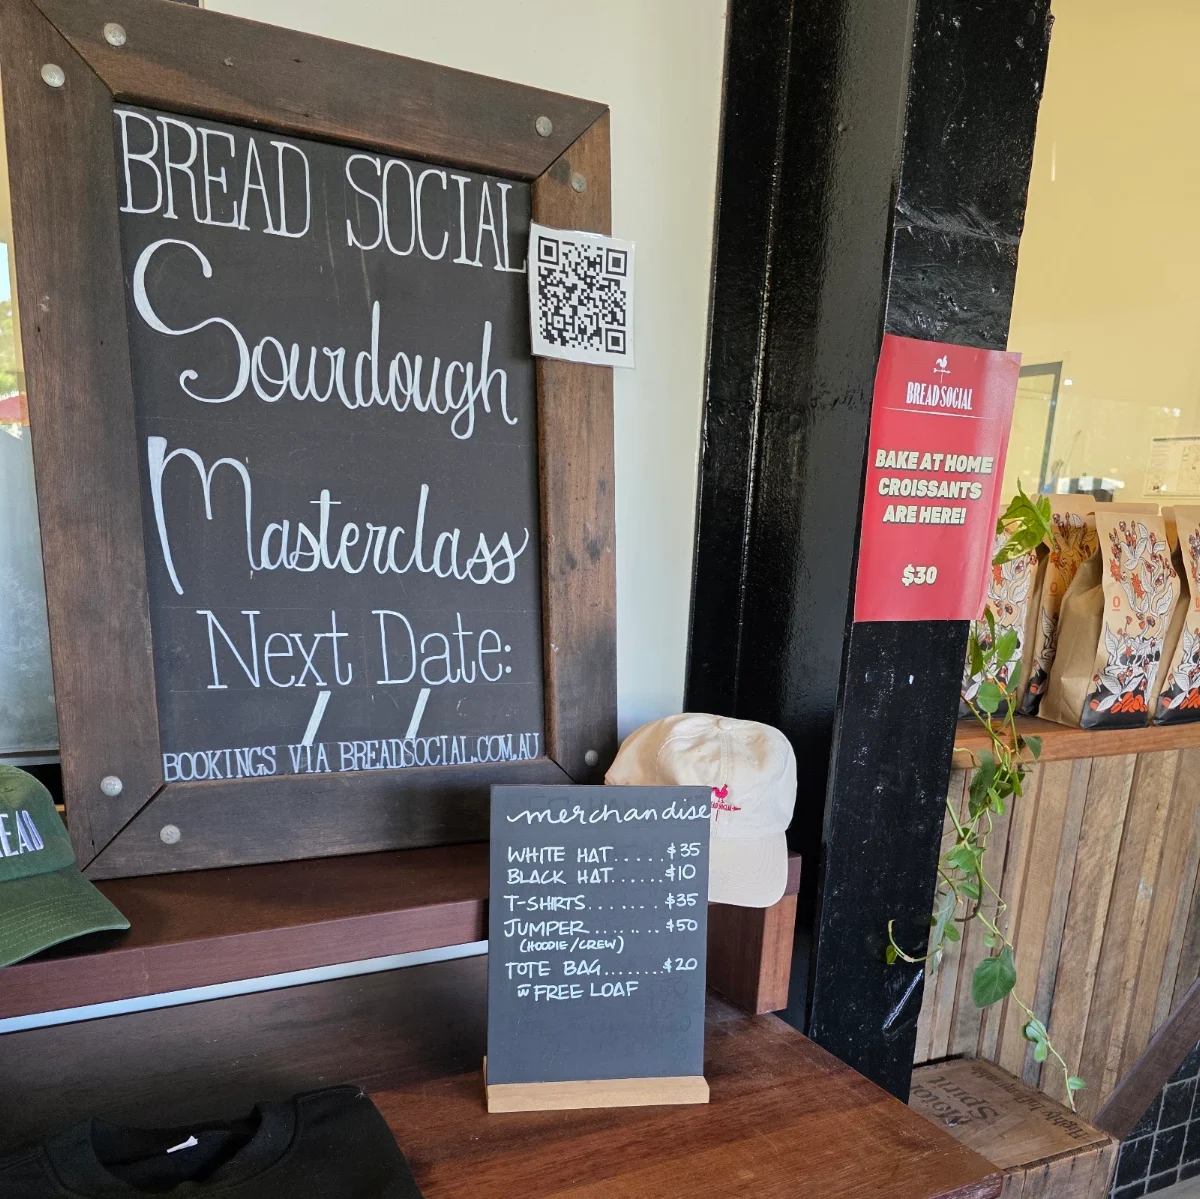 BREAD SOCIAL
Sourdough
Masterclass
Next Date:
/ /
BOOKINGS VIA BREADSOCIAL.COM.AU
BREAD SOCIAL
BAKE AT HOME
CROISSANTS
ARE HERE!
$30
merchandise
WHITE HAT.....$35
BLACK HAT......$10
T-SHIRTS.......$35
JUMPER........$50
(HOODIE/CREW)
TOTE BAG.......$20
w FREE LOAF
Motor
Spirit